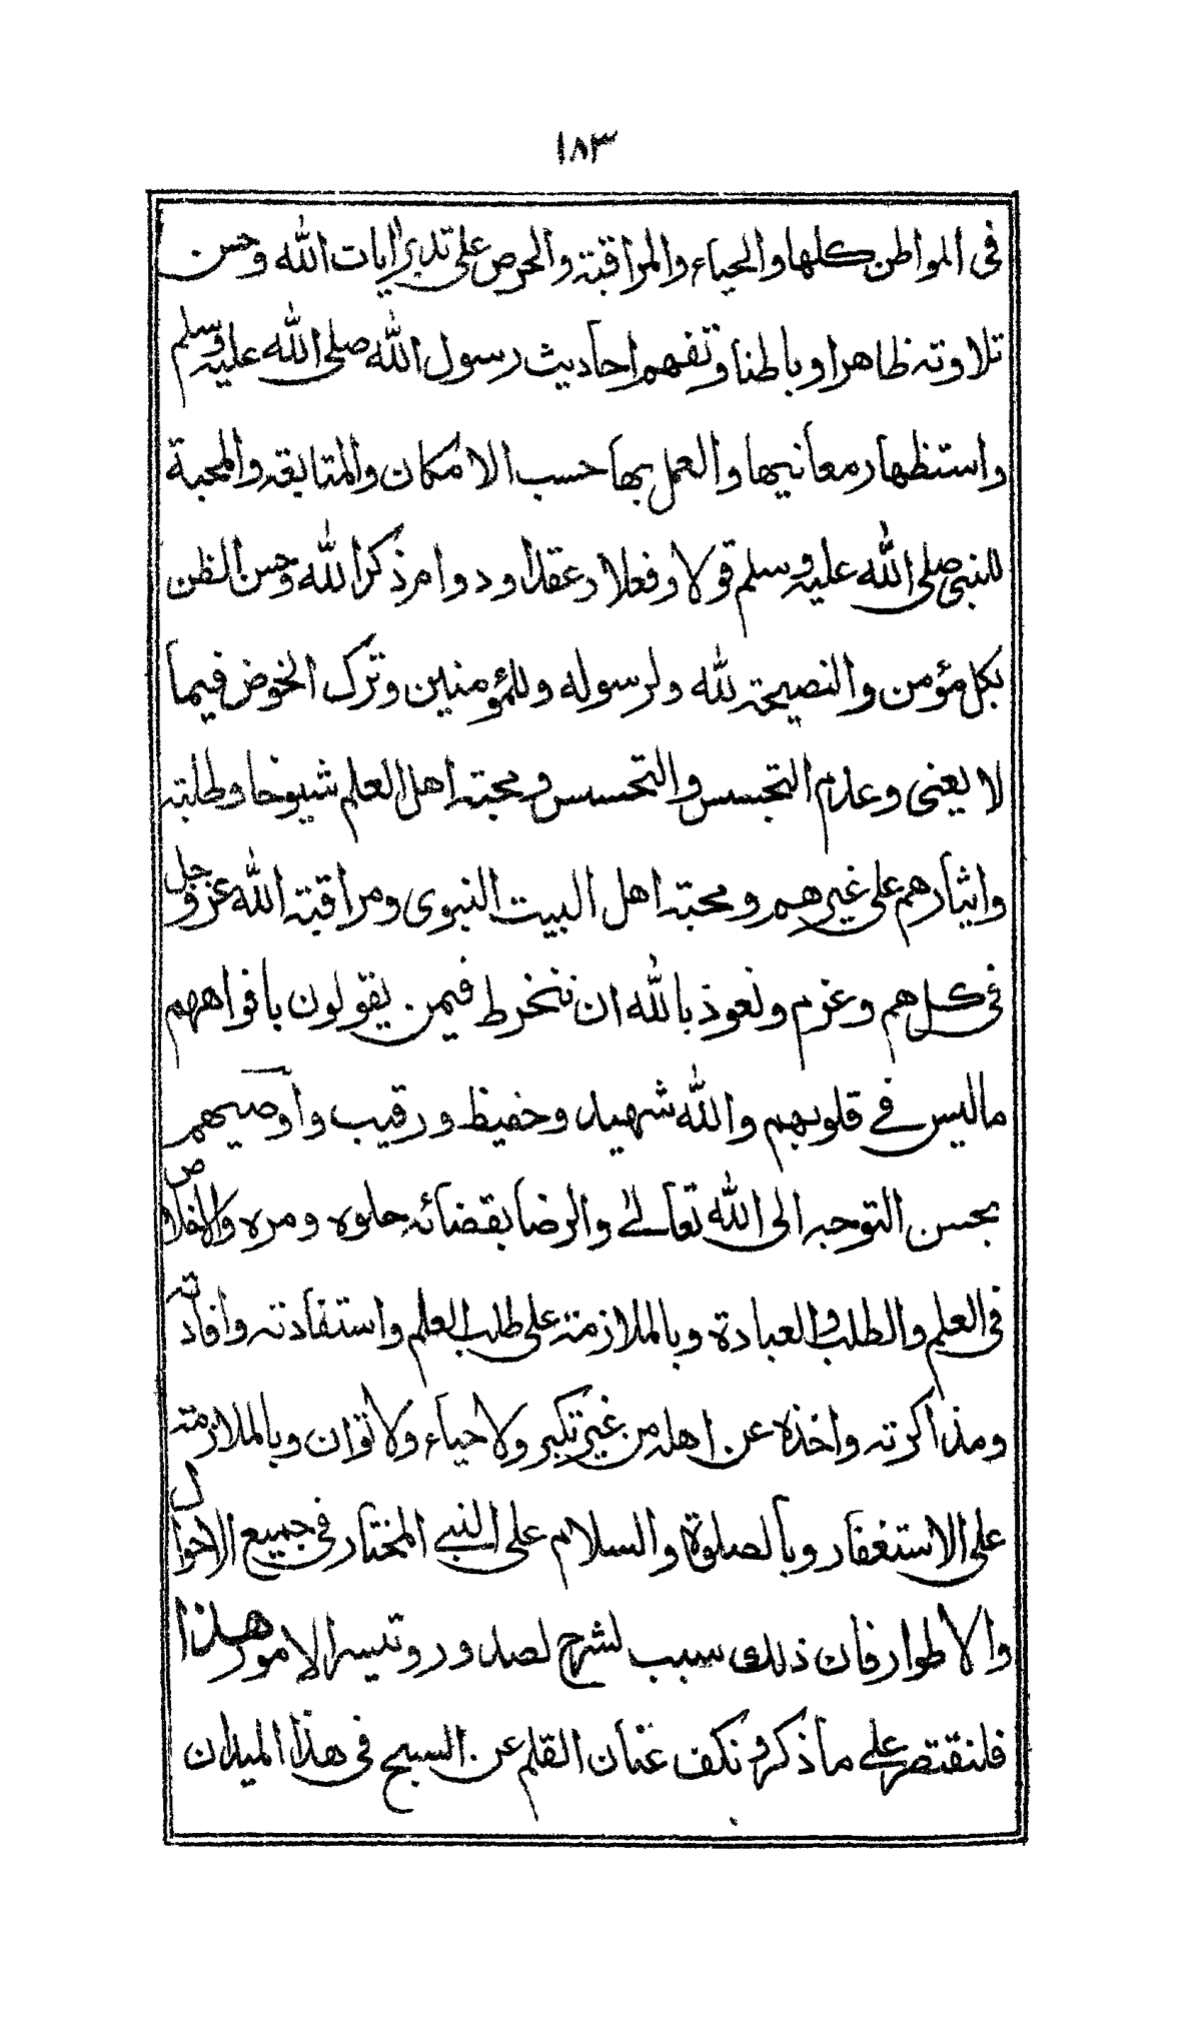 ١٨٣
فى المواطن كلها والحياء والمراقبة والحرص على تدبر ايات الله وحسن
تلاوته ظاهرا وباطنا وتفهم احاديث رسول الله صلى الله عليه وسلم
واستظهار معانيها والعمل بها حسب الامكان والمتابعة والمحبة
للنبى صلى الله عليه وسلم قولا وفعلا وعقدا ودوام ذكر الله وحسن الظن
بكل مؤمن والنصيحة لله ولرسوله وللمؤمنين وترك الخوض فيما
لا يعنى وعدم التجسس والتحسس ومحبة اهل العلم شيوخا وطلبة
وايثارهم على غيرهم ومحبة اهل البيت النبوى ومراقبة الله عز وجل
فى كل هم وعزم ونعوذ بالله ان ننخرط فيمن يقولون بافواههم
ما ليس فے قلوبهم والله شهيد وحفيظ ورقيب واوصيهم
بحسن التوجه الى الله تعالے والرضا بقضائه حلوه ومره والاخلاص
فى العلم والطلب والعبادة وبالملازمة على طلب العلم واستفادته وافادته
ومذاكرته واخذه عن اهله من غير تكبر ولا حياء ولا توان وبالملازمة
على الاستغفار وبالصلوة والسلام على النبے المختار فى جميع الاحوال
والاطوار فان ذلك سبب لشرح لصدور وتيسر الامور هذا
فلنقتصر على ما ذكر ونكف عنان القلم عن السبح فى هذا الميدان